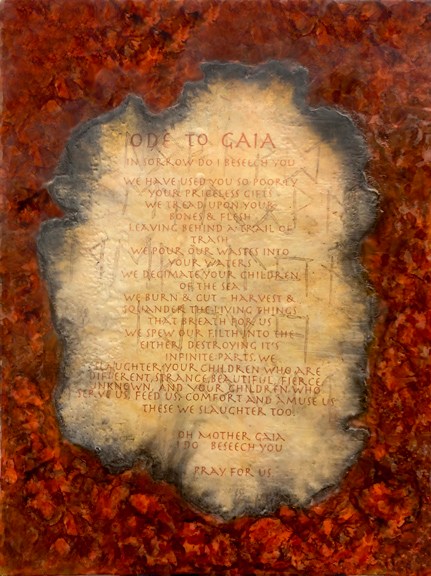 ODE TO GAIA
IN SORROW DO I BESEECH YOU
WE HAVE USED YOU SO POORLY
YOUR PRICELESS GIFTS
WE TREAD UPON YOUR
BONES & FLESH
LEAVING BEHIND A TRAIL OF
TRASH
WE POUR OUR WASTES INTO
YOUR WATERS
WE DECIMATE YOUR CHILDREN
OF THE SEA
WE BURN & CUT - HARVEST &
SQUANDER THE LIVING THINGS
THAT BREATH FOR US
WE SPEW OUR FILTH INTO THE
EITHER, DESTROYING IT'S
INFINITE PARTS. WE
SLAUGHTER YOUR CHILDREN WHO ARE
DIFFERENT, STRANGE, BEAUTIFUL, FIERCE,
UNKNOWN, AND YOUR CHILDREN WHO
SERVE US, FEED US, COMFORT AND AMUSE US.
THESE WE SLAUGHTER TOO.
OH MOTHER GAIA
I DO BESEECH YOU
PRAY FOR US